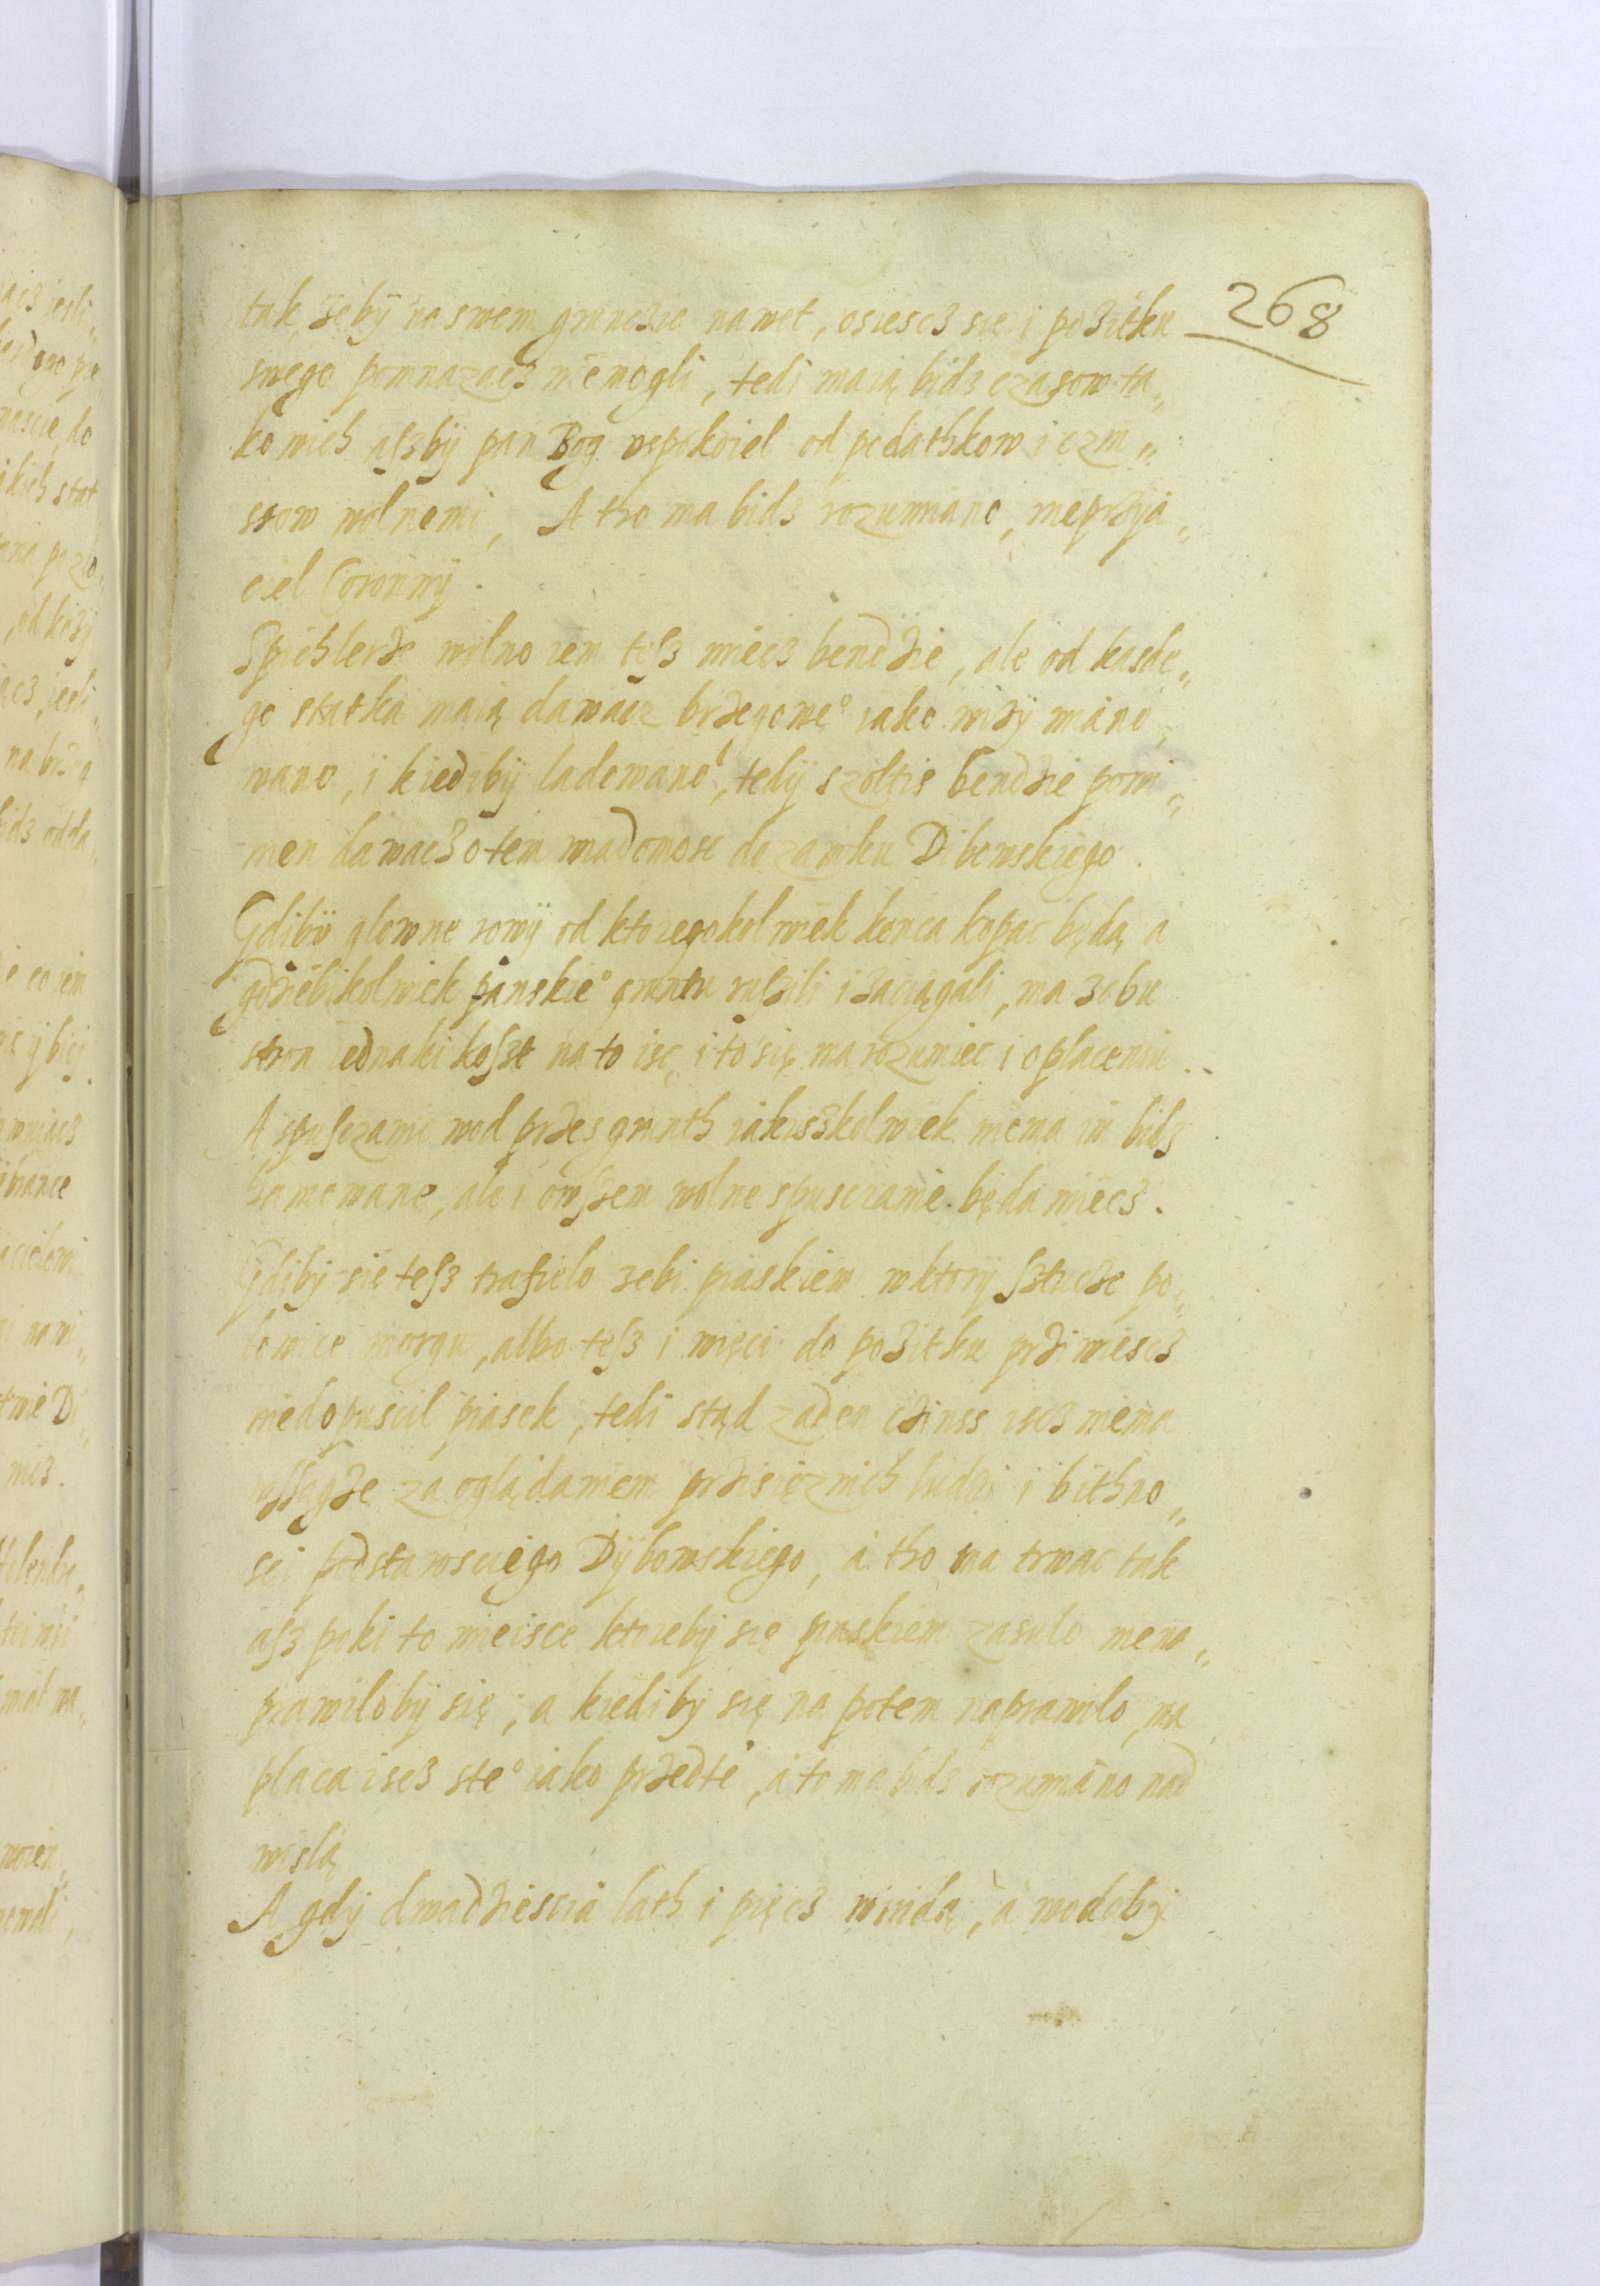 268
tak, żebÿ na swem grunczie nawet, osiescz sie i pożitku
swego pomnazacz niemogli, tedi maią bidz czasow ta„
kowich aſzbÿ pan Bog uspokoiel od podathkow i czin„
szow wolnemi, A tho ma bidz rozumiano, nieprzyia„
ciel Coronnÿ.
Spichlerze wolno iem teſz miecz bendzie, ale od kasde„
go statka maią dawacz brzegowe° iako wizÿ miano„
wano, i kiedibÿ ladowano, tedÿ szoltis bendzie powi„
nien dawacz o tem wiadomosc do zamku Dibowskiego.
Gdibÿ glowne rowÿ od ktoregokolwiek konca kopac będą a
gdziebikolwiek panskie° gruntu ruſzili i zaciągali, ma z obu
stron iednaki koſzt na to isc, i to się ma rozumiec i o placeniu.
A spuſczanie wod przes grunth iakisżkolwiek niema im bidz
hamowane, ale i owſzem wolne spusczanie będa miecz.
Gdibÿ sie teſz trafielo zebi piaskiem w ktorÿ ſztucze po„
lowice morgu, albo teſz i więci do pożitku prziwiescz
niedopuscil piasek, tedi stąd zaden czinss iscz niema
wſſagże za oglądaniem przisieznich ludzi i bithno„
sci podstarosciego Dÿbowskiego, a tho ma trwac tak
aſz poki to mieisce ktorebÿ się piaskiem zasulo niena„
prawilobÿ się, a kiedibÿ się na potem naprawilo, ma
placa iscz ste° iako przedte, a to ma bidz rozumiano nad
wislą
A gdÿ dwadziescia lath i pięcz winidą, a wodobÿ